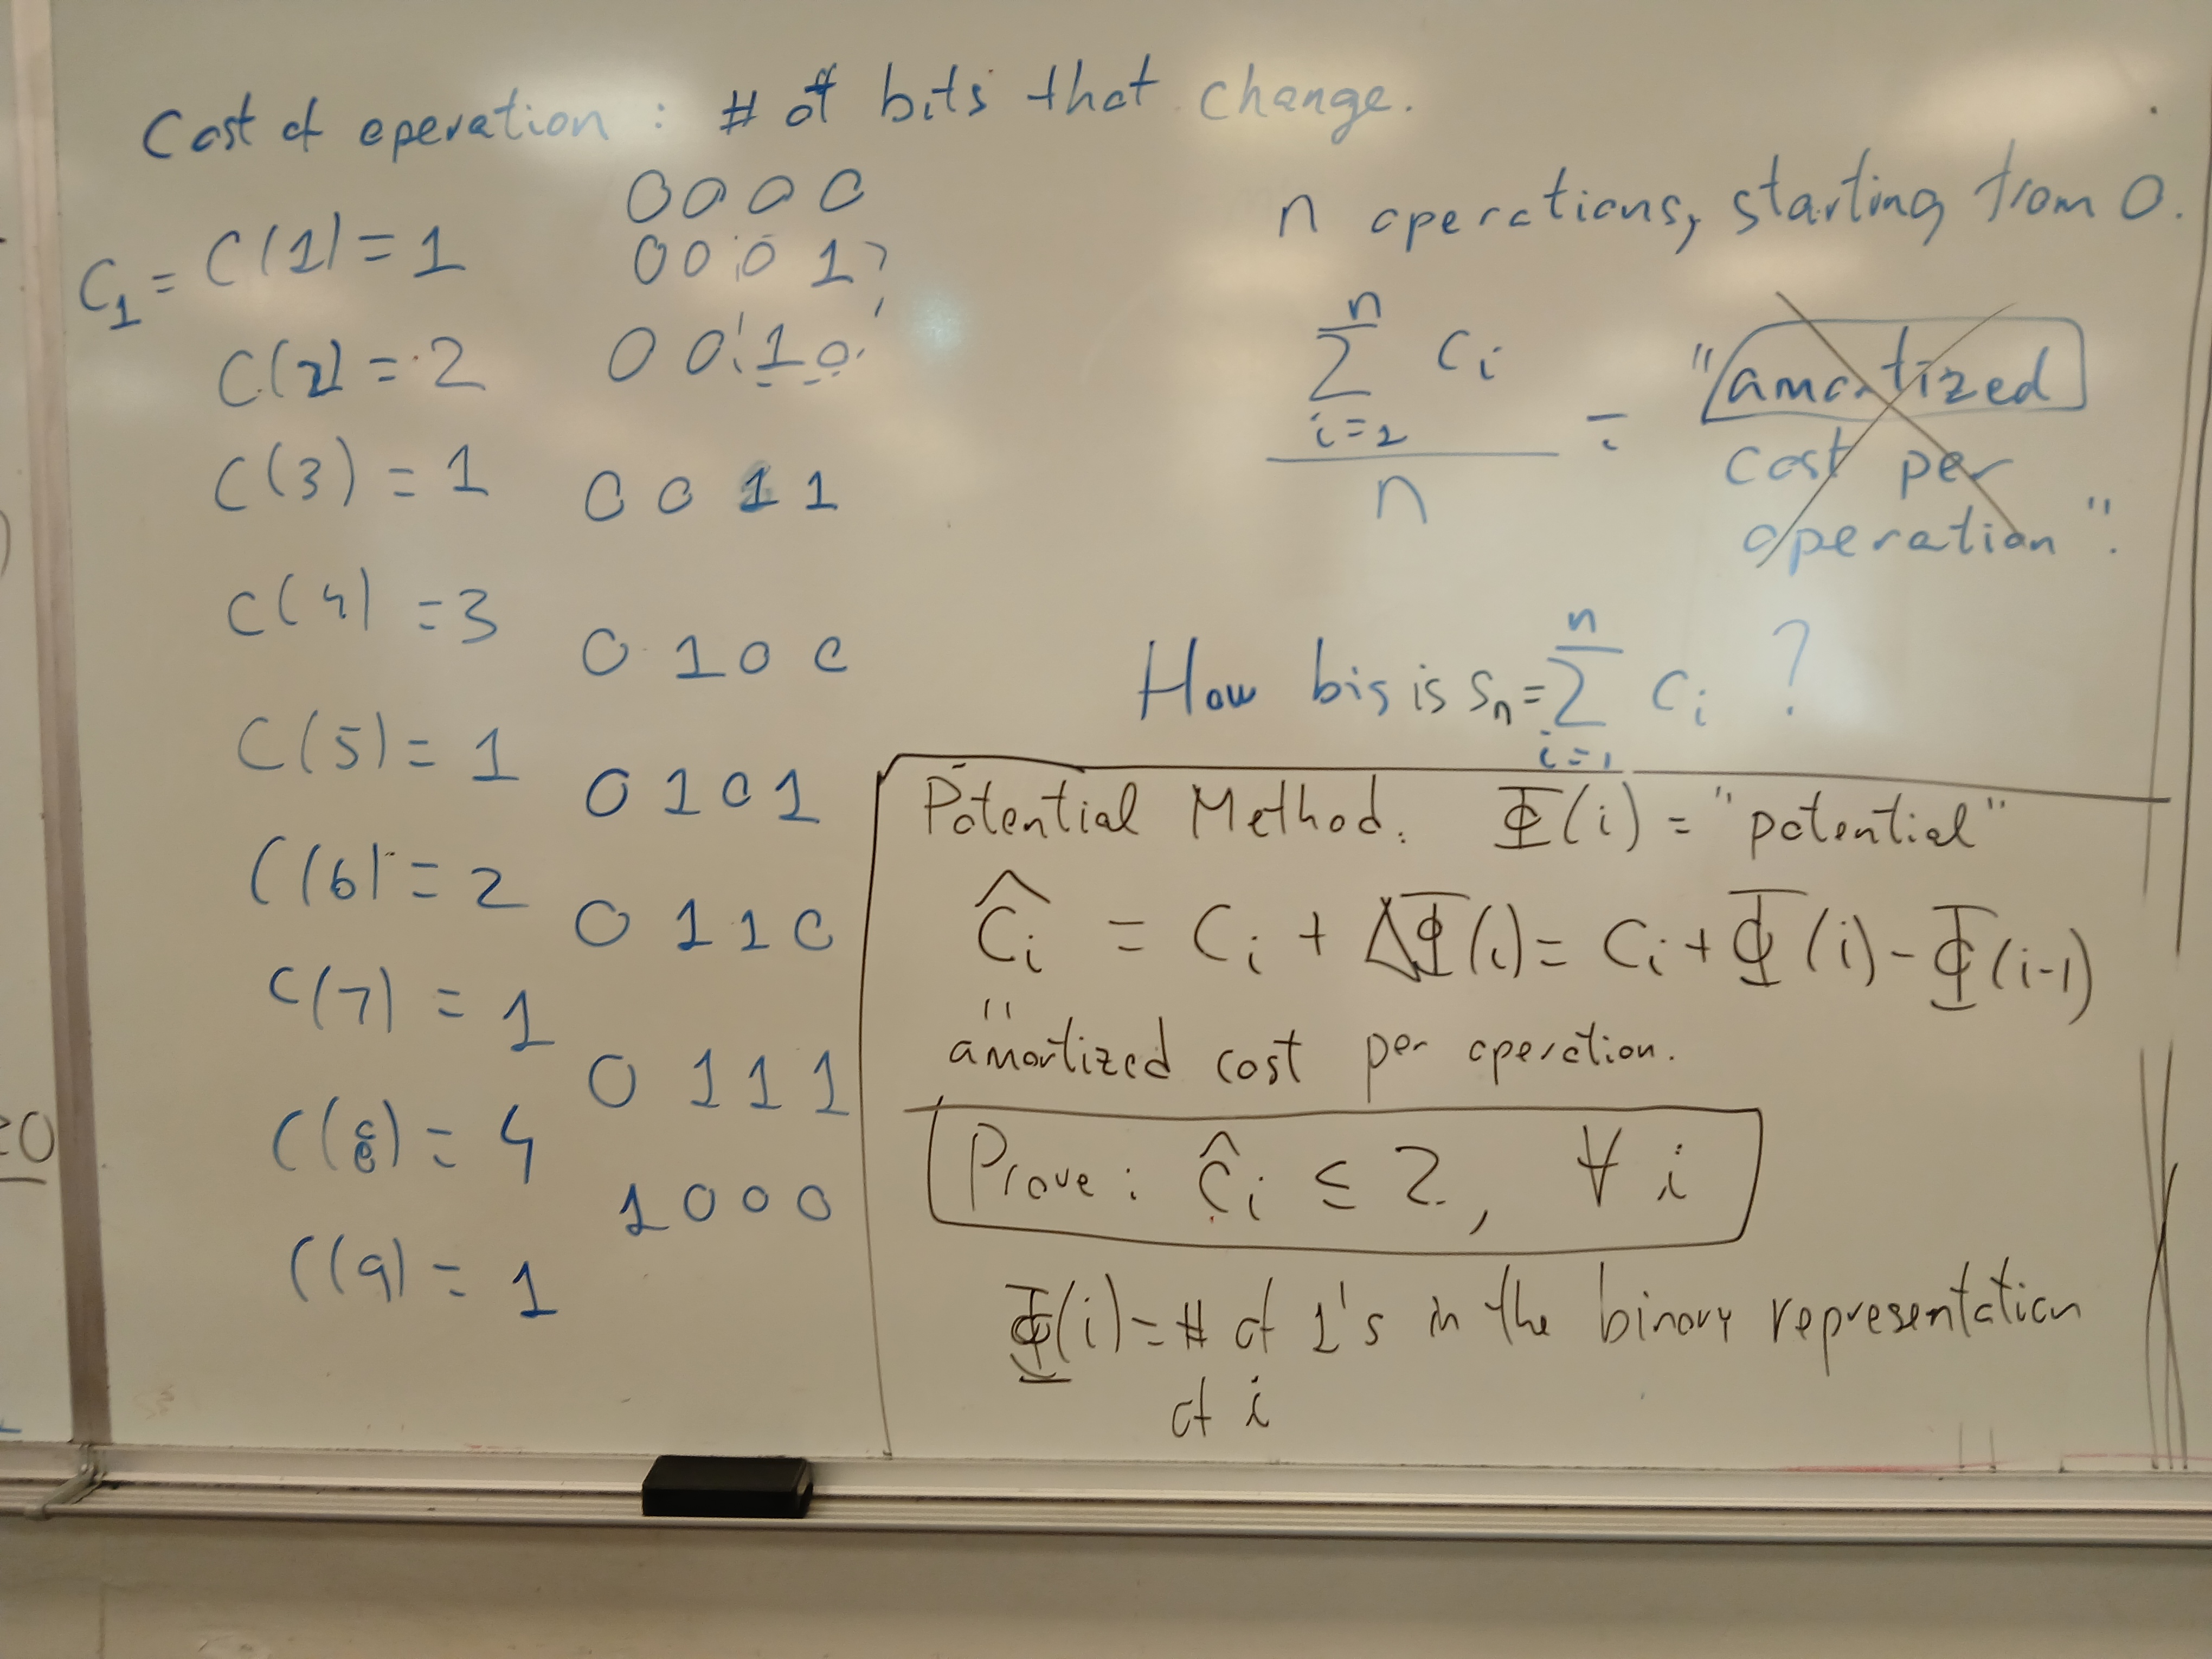 Cost of operation : # of bits that change.
0 0 0 0
C₁ = C(1) = 1 0 0 0 1
C(2) = 2 0 0 1 0
C(3) = 1 0 0 1 1
C(4) = 3 0 1 0 0
C(5) = 1 0 1 0 1
C(6) = 2 0 1 1 0
C(7) = 1 0 1 1 1
C(8) = 4 1 0 0 0
C(9) = 1
n operations, starting from 0.
n
∑ cᵢ
i=1
n
= "amortized
cost per
operation".
How big is Sₙ = ∑ cᵢ ?
n
i=1
Potential Method. Φ(i) = "potential"
ĉᵢ = cᵢ + ΔΦ(i) = cᵢ + Φ(i) - Φ(i-1)
"
amortized cost per operation.
Prove : ĉᵢ ≤ 2, ∀ i
Φ(i) = # of 1's in the binary representation
of i